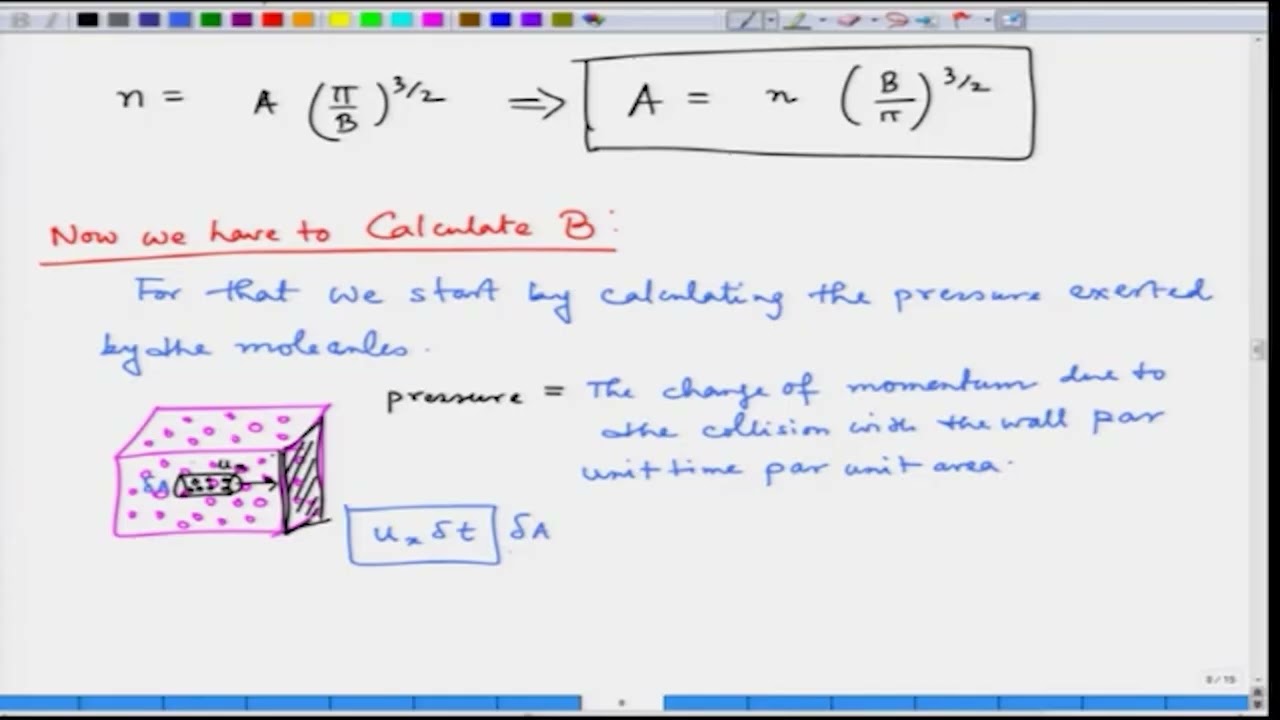 n = A (π/B)^3/2 ⇒ A = n (B/π)^3/2
Now we have to Calculate B:
For that we start by calculating the pressure exerted
by the molecules.
pressure = The change of momentum due to
the collision with the wall par
unit time par unit area.
δA uₓ
uₓ δt δA
8/15